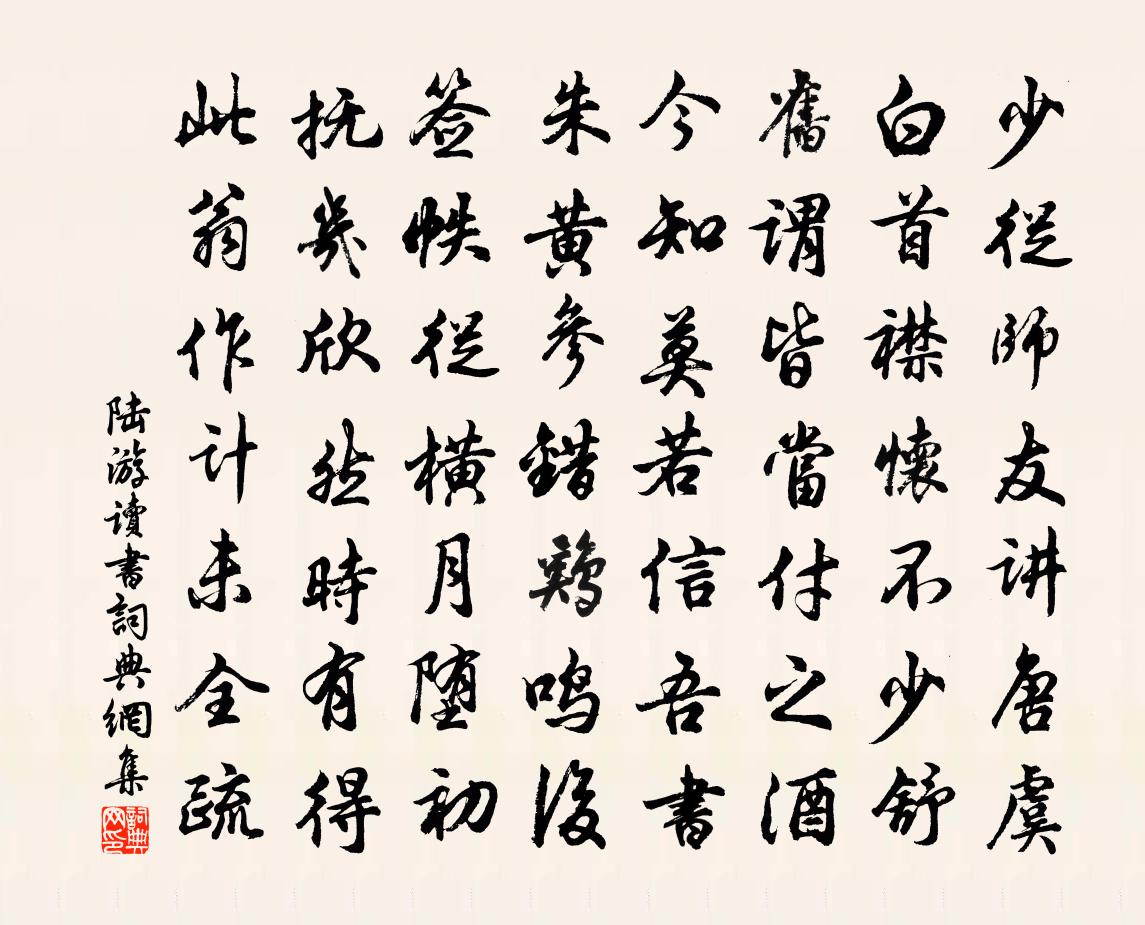 少從師友讲唐虞
白首襟懷不少舒
舊谓皆當付之酒
今知莫若信吾書
朱黄參錯鷄鸣後
签帙從橫月堕初
抚几欣然時有得
此翁作计未全疏
陆游读書詞典網集
詞典